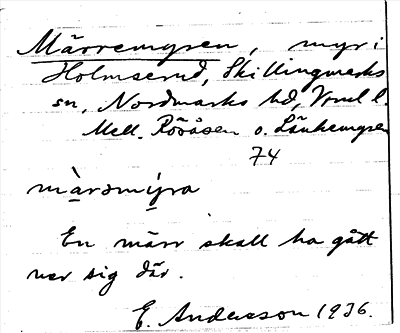 Märremyren, myr i
Holmserud, Skillingmarks
sn, Nordmarks hd, Vrml l.
Mell. Röåsen o. Länkemyren
74
màrsmýra
En märr skall ha gått
ner sig där.
E. Andersson 1936.